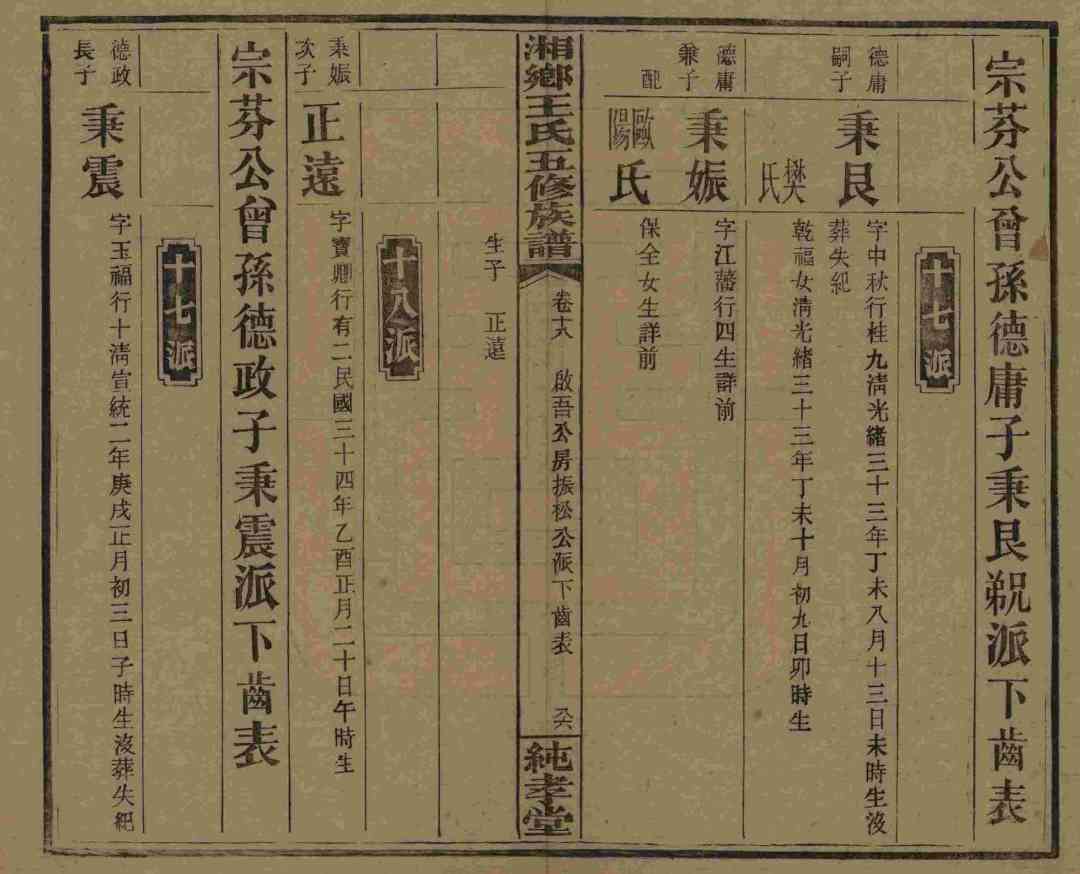 宗芬公曾孫德庸子秉艮娠派下齒表
十七派
德庸
嗣子
秉艮
字中秋行桂九清光緒三十三年丁未八月十三日未時生沒
葬失紀
樊氏
乾福女清光緒三十三年丁未十月初九日卯時生
德庸
兼子
秉娠
字江藩行四生詳前
配
歐陽氏
保全女生詳前
湘鄉王氏五修族譜
卷十六
啟吾公房振松公派下齒表
純孝堂
生子 正遠
十八派
秉娠
次子
正遠
字寶卿行有二民國三十四年乙酉正月二十日午時生
宗芬公曾孫德政子秉震派下齒表
十七派
德政
長子
秉震
字玉福行十清宣統二年庚戌正月初三日子時生沒葬失紀